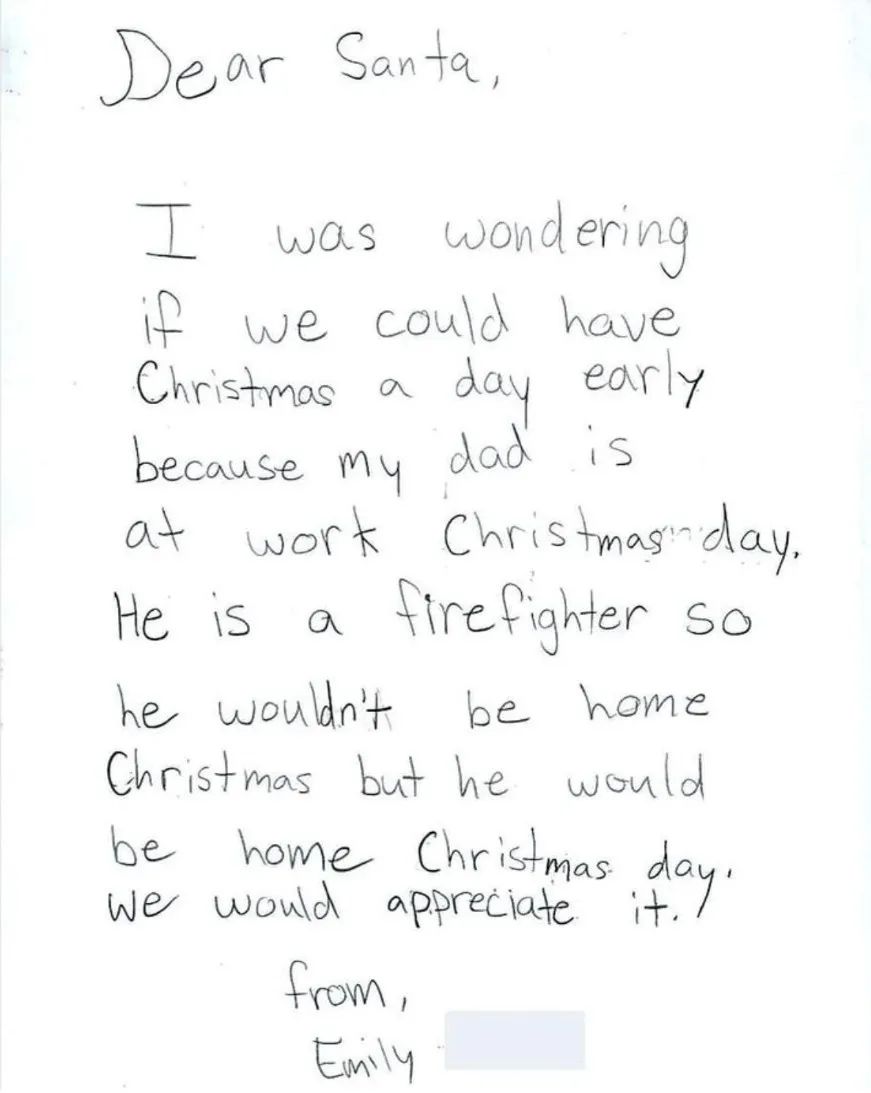 Dear Santa,
I was wondering
if we could have
Christmas a day early
because my dad is
at work Christmas day.
He is a firefighter so
he wouldn't be home
Christmas but he would
be home Christmas day.
We would appreciate it.
from,
Emily